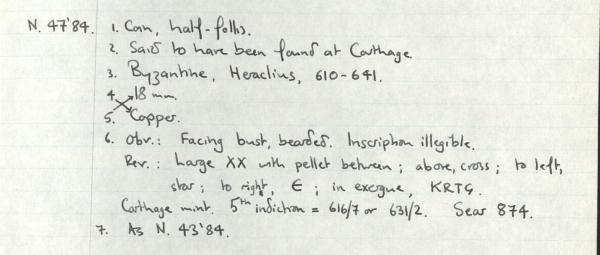 N. 47'84. 1. Coin, half-follis.
2. Said to have been found at Carthage.
3. Byzantine, Heraclius, 610-641.
4. 18 mm.
5. Copper.
6. Obv.: Facing bust, bearded. Inscription illegible.
Rev.: Large XX with pellet between; above, cross; to left,
star; to right, Є; in exergue, KRTG.
Carthage mint. 5th indiction = 616/7 or 631/2. Sear 874.
7. As N. 43'84.